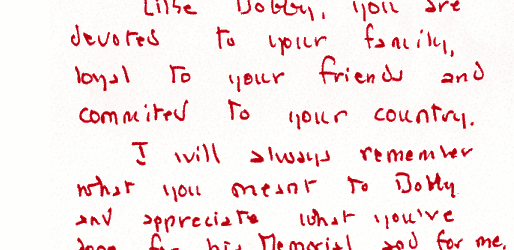 Like Bobby, you are
devoted to your family,
loyal to your friends and
commited to your country.
I will always remember
what you meant to Bobby
and appreciate what you've
done for his Memorial and for me.